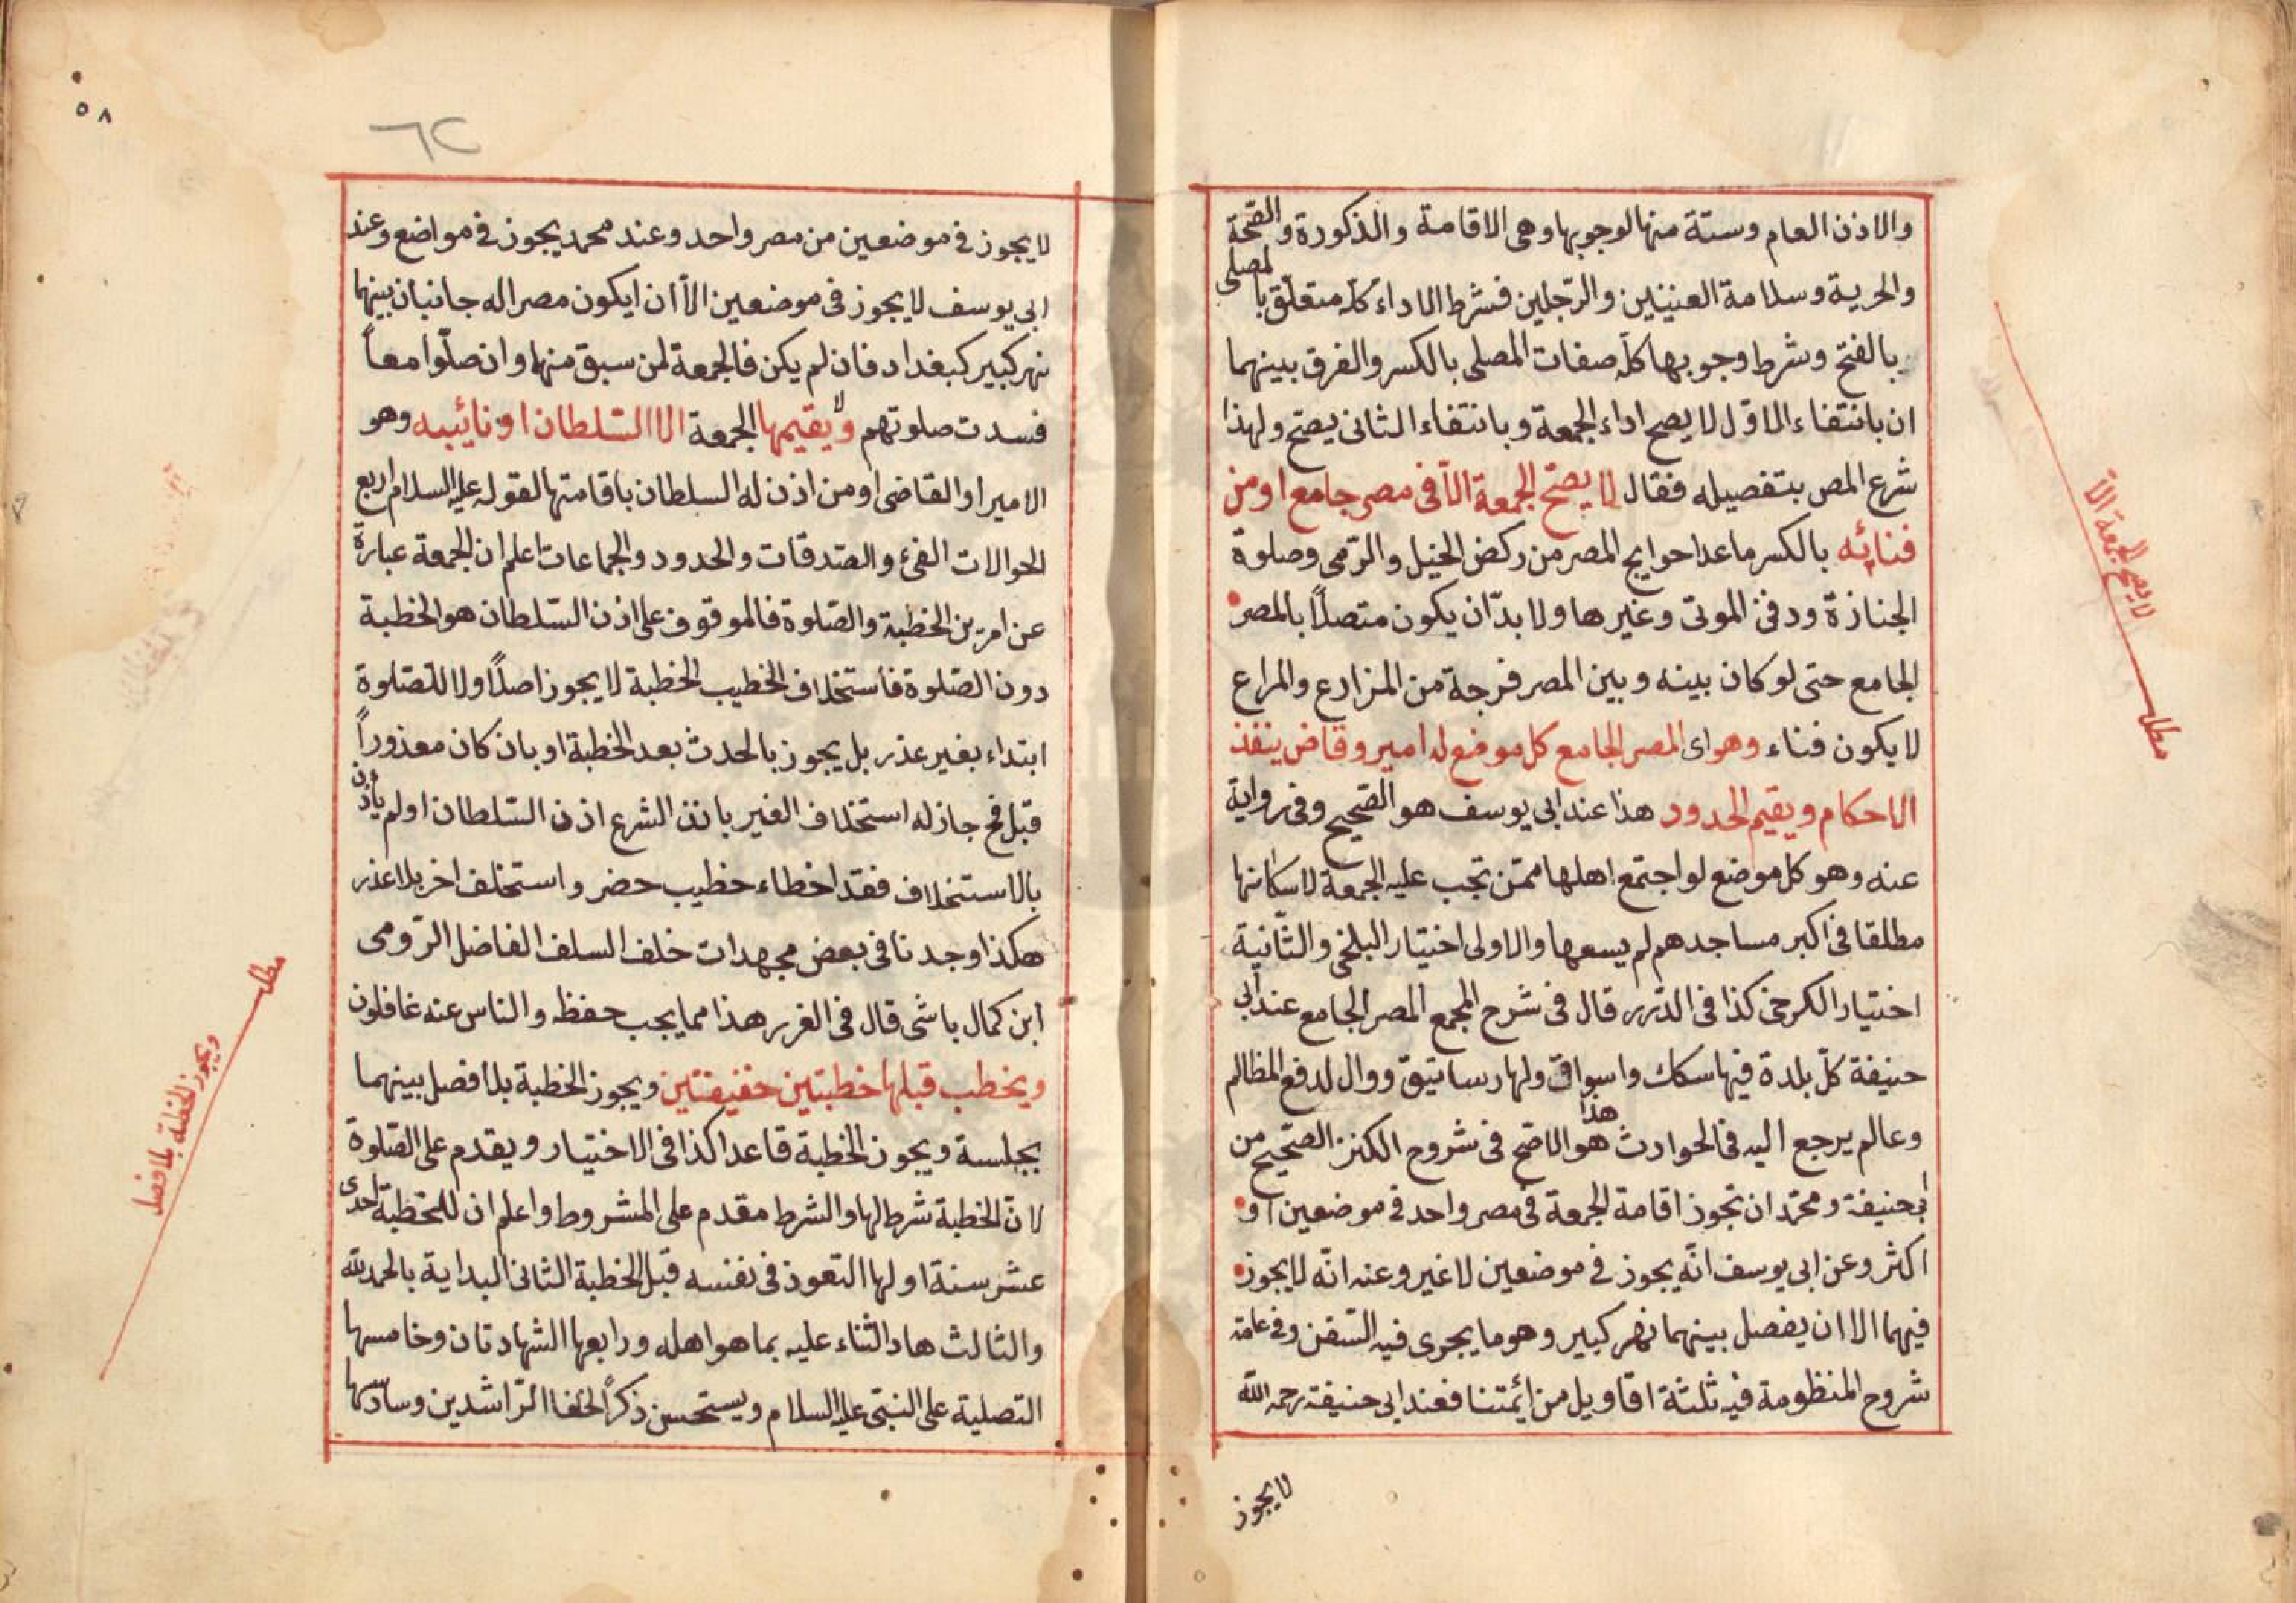 والاذن العام وستة منها لوجوبها وهى الاقامة والذكورة والصّحة
والحرية وسلامة العينين والرّجلين فشرط الاداء كلّه متعلّق بالمصلى
بالفتح وشرط وجوبها كلّه صفات المصلى بالكسر والفرق بينهما
ان بانتفاء الاوّل لا يصح اداء الجمعة وبانتفاء الثانى يصحّ ولهذا
شرع المص بتفصيله فقال لا يصحّ الجمعة الّا فى مصر جامع او من
فنائه بالكسر ما عدا حوايج المصر من ركض الخيل والرّمى وصلوة
الجنازة ودفن الموتى وغيرها ولا بدّ ان يكون متصلاً بالمصر
الجامع حتى لو كان بينه وبين المصر فرجة من المزارع والمراع
لا يكون فناء وهو اى المصر الجامع كل موضع له امير وقاض ينفذ
الاحكام ويقيم الحدود هذا عند ابى يوسف هو الصّحيح وفى رواية
عنه وهو كل موضع لو اجتمع اهلها ممّن تجب عليه الجمعة لا سكانها
مطلقا فى اكبر مساجدهم لم يسعها والاولى اختيار البلخى والثّانية
اختيار الكرخى كذا فى الدّرر قال فى شرح المجمع المصر الجامع عند ابى
حنيفة كلّ بلدة فيها سكك واسواق ولها رساتيق ووال لدفع المظالم
وعالم يرجع اليه فى الحوادث هذا هو الاصّح فى شروح الكنز الصّحيح من
ابى حنيفة ومحمّد ان تجوز اقامة الجمعة فى مصر واحد فى موضعين او
اكثر وعن ابى يوسف انّه يجوز فى موضعين لا غير وعنه انّه لا يجوز
فيهما الا ان يفصل بينهما نهر كبير وهو ما يجرى فيه السّفن وفى عامّة
شروح المنظومة فيه ثلثة اقاويل من ائمّتنا فعند ابى حنيفة رحمه اللّه
لا يجوز
لا يصح الجمعة الّا
مطلب
٥٨
٦٢
لا يجوز فى موضعين من مصر واحد وعند محمد يجوز فى مواضع وعند
ابى يوسف لا يجوز فى موضعين الاّ ان ايكون مصرا له جانبان بينهما
نهر كبير كبغداد فان لم يكن فالجمعة لمن سبق منها وان صلّوا معاً
فسدت صلوتهم ولا يقيمها الجمعة الا السّلطان او نائبه وهو
الامير او القاضى او من اذن له السلطان باقامتها لقوله عليه السلام اربع
الحوالات الفئ والصّدقات والحدود والجماعات اعلم ان الجمعة عبارة
عن امرين الخطبة والصّلوة فالموقوف على اذن السّلطان هو الخطبة
دون الصّلوة فأستخلاف الخطيب الخطبة لا يجوز اصلاً ولا للصّلوة
ابتداء بغير عذر بل يجوز بالحدث بعد الخطبة او بان كان معذوراً
قبل فح جاز له استخلاف الغير باذن الشرع اذن السّلطان او لم يأذن
بالاستخلاف فقد اخطاء خطيب حضر واستخلف اخر بلا عذر
هكذا وجدنا فى بعض مجهدات خلف السلف الفاضل الرّومى
ابن كمال باشى قال فى الغرر هذا مما يجب حفظه والناس عنه غافلون
ويخطب قبلها خطبتين خفيفتين ويجوز الخطبة بلا فصل بينهما
بجلسة ويجوز الخطبة قاعدا كذا فى الاختيار ويقدم على الصّلوة
لانّ الخطبة شرط لها والشرط مقدم على المشروط واعلم ان للخطبة احدى
عشر سنة اولها التعوذ فى نفسه قبل الخطبة الثانى البداية بالحمد لله
والثالث هاد الثناء عليه بما هو اهله ورابعها الشهادتان وخامسها
التصلية على النبىّ عليه السلام ويستحسن ذكر الخلفا الرّاشدين وسادسها
مطلب
ويجوز الخطبة بلا فصل